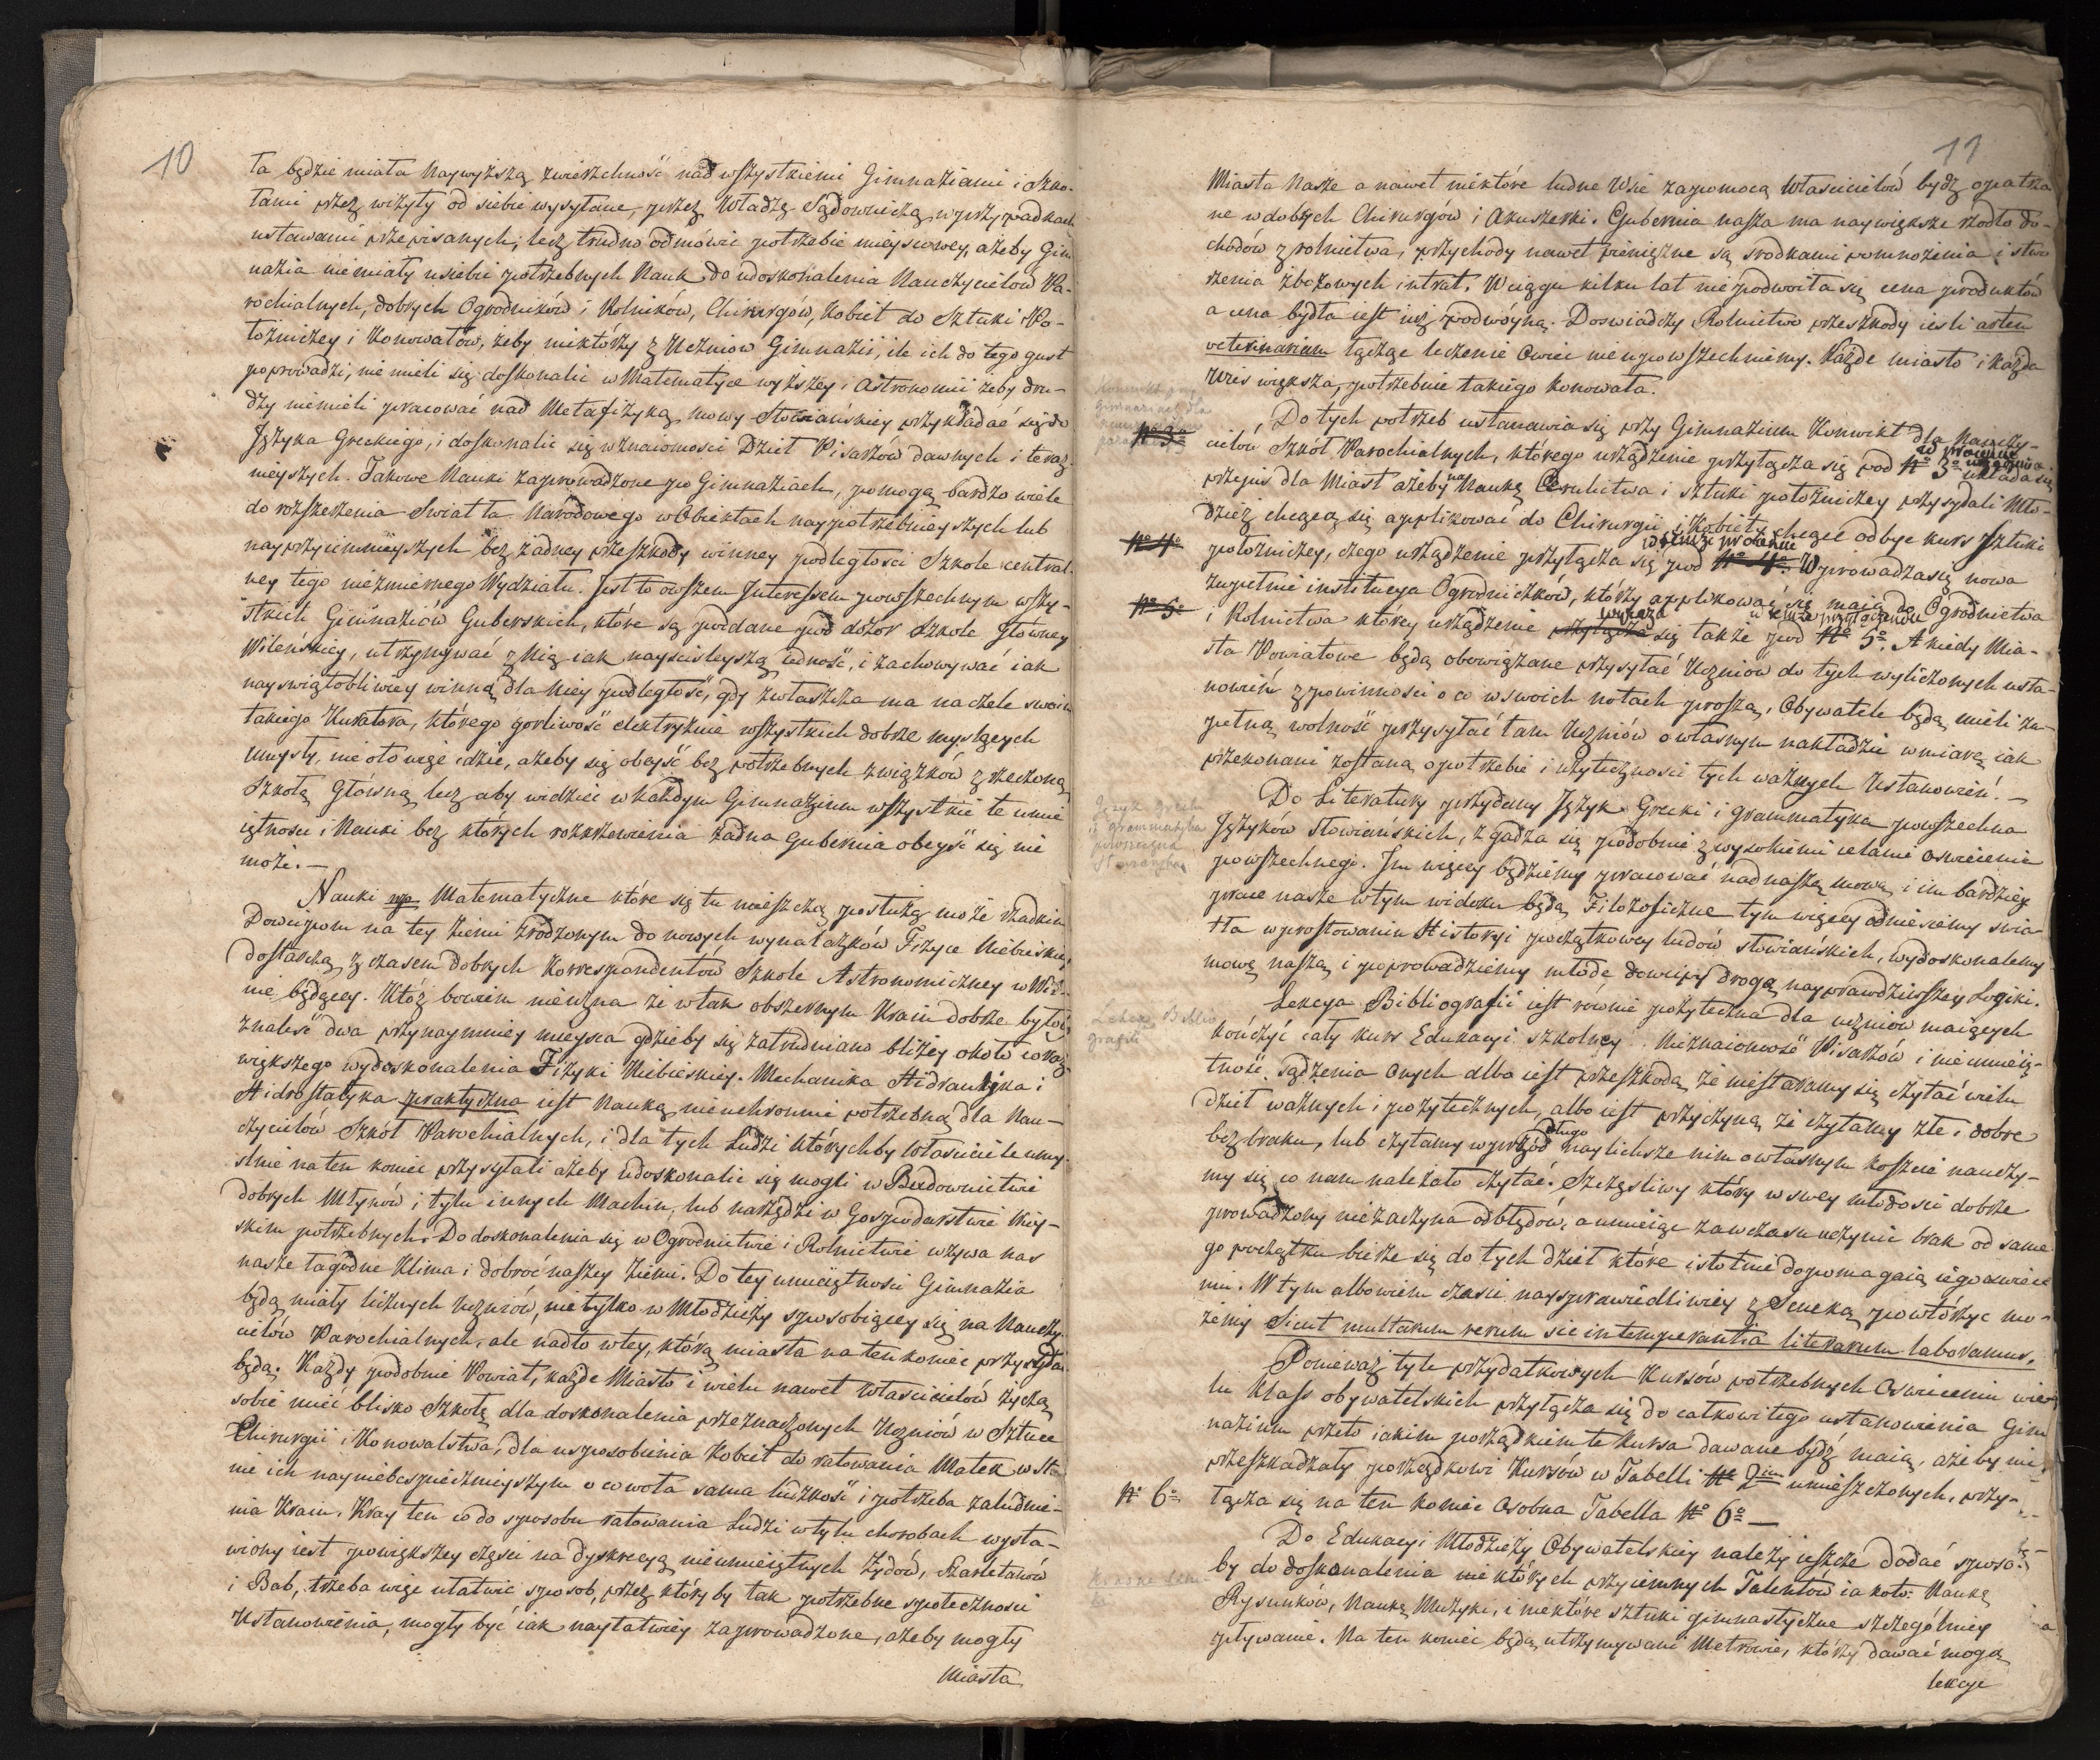 10
ta będzie miała Naywyższą zwierzchność nad wszystkiemi Gimnaziami i Szko-
łami przez wizyty od siebie wysyłane, przez Władzę Sądowniczą w przypadkach
ustawami przepisanych; lecz trudno odmówić potrzebie mieyscowey, ażeby Gim
nazia nie miały u siebie potrzebnych Nauk do udoskonalenia Nauczycielow Pa-
rochialnych, dobrych Ogrodników i Rolników, Chirurgów, Kobiet do Sztuki Po-
łożniczey i Konowałów, żeby niektórzy z Uczniow Gimnazii, ile ich do tego gust
poprowadzi, nie mieli się doskonalić w Matematyce wyższey i Astronomii żeby dru-
dzy niemieli pracować nad Metafizyką mowy Słowiańskiey przykładać się do
Języka Greckiego, i doskonalić się w znaiomosci Dzieł Pisarzów dawnych i teraz-
nieyszych. Takowe Nauki zaprowadzone po Gimnaziach, pomogą bardzo wiele
do rozszerzenia Swiatła Narodowego w Obiektach naypotrzebnieyszych lub
nayprzyiemnieyszych bez żadney przeszkody winney podległosci Szkole central-
ney tego niezmiernego Wydziału. Jest to owszem Interessem powszechnym wszy-
stkich Gimnaziów Guberskich, które są poddane pod dozor Szkole Główney
Wileńskiey, utrzymywać z Nią iak nayscisleyszą iedność, i zachowywać iak
nayswiątobliwiey winną dla Niey podległość, gdy zwłaszcza ma na czele swoim
takiego Kuratora, którego gorliwość elektryzuie wszystkich dobrze myślących
umysły, nie o to więc idzie, ażeby się obeyść bez potrzebnych związków z rzeczoną
Szkołą Główną, lecz aby widzieć w każdym Gimnazium wszystkie te umie
iętności i Nauki bez których rozkrzewienia żadna Gubernia obeyść się nie
może.—
Nauki np Matematyczne które się tu mieszczą posłużą może rzadkim
Dowcipom na tey ziemi zrodzonym do nowych wynalazków Fizyce Niebieskiey
dostarczą z czasem dobrych Korrespondentów Szkole Astronomiczney w Wil-
nie będącey. Któż bowiem nie uzna że w tak obszernym Kraiu dobrze byłoby
znaleść dwa przynaymniey mieysca gdzieby się zatrudniano bliżey około coraz
większego wydoskonalenia Fizyki Niebieskiey. Mechanika Hidraulyna i
Hidrostatyka praktyczna iest Nauką nieuchronnie potrzebną dla Nau-
czycielów Szkół Parochialnych, i dla tych Ludzi którychby Właściciele umy-
slnie na ten koniec przysyłali ażeby udoskonalić się mogli w Budownictwie
dobrych Młynów i tylu innych Machin, lub narzędzi w Gospodarstwie Wiey-
skim potrzebnych. Do doskonalenia się w Ogrodnictwie i Rolnictwie wzywa nas
nasze łagodne Klima i dobroć naszey ziemi. Do tey umieiętnosci Gimnazia
będą miały licznych Uczniów, nie tylko w Młodzieży sposobiącey się na Nauczy-
cielów Parochialnych, ale nadto w tey, którą miasta na ten koniec przysyłać
będą. Każdy podobnie Powiat, każde Miasto i wielu nawet Właścicielów życzą
sobie mieć blisko Szkołę dla doskonalenia przeznaczonych Uczniów w Sztuce
Chirurgii i Konowalstwa, dla usposobienia Kobiet do ratowania Matek w sta-
nie ich nayniebespiecznieyszym o co woła sama ludzkość i potrzeba zaludnie-
nia Kraiu. Kray ten co do sposobu ratowania Ludzi w tylu chorobach wysta-
wiony iest po większey części na dyskrecyą nieumieiętnych Żydów, Szarletanów
i Bab, trzeba więc ułatwić sposob, przez któryby tak potrzebne społeczności
Ustanowienia, mogły być iak nayłatwiey zaprowadzone, ażeby mogły
Miasta
11
Miasta Nasze a nawet niektóre ludne Wsie zapomocą Właścicielów bydź opatrzo
ne w dobrych Chirurgów i Akuszerki. Gubernia nasza ma naywiększe zrodło do-
chodów z rolnictwa, przychody nawet pieniężne są srodkami pomnożenia i stwo
rzenia zbożowych intrat. W ciągu kilku lat nie podwoiła się cena produktów
a cena bydła iest już podwóyną. Doswiadczy Rolnictwo przeszkody iesli artem
veterinariam tęczęc leczenie Owiec nie upowszechniemy. Każde miasto i każda
Wieś większa, potrzebuie takiego Konowała.
Konwikt przy
Gimnaziach dla
Do tych potrzeb ustanawia się przy Gimnazium Konwikt dla Nauczy-
Nº 3º
cielów Szkół Parochialnych, którego urządzenie przyłącza się pod Nº 3º układa się
przepis dla Miast ażeby na Naukę Cerulictwa i sztuki położniczey przysyłali Mło-
dzież chcącą się applikować do Chirurgii, i Kobiety chcące odbyć kurs sztuki
w temże proiekcie
Nº 4º
położniczey, czego urządzenie przyłącza się pod Nº 4º. Wprowadza się nowa
zupełnie instytucya Ogrodniczków, którzy applikować się maią do Ogrodnictwa
wyraża w temże przyłączeniu
Nº 5º
i Rolnictwa którey urządzenie przyłącza się także pod Nº 5º. A kiedy Mia-
sta Powiatowe będą obowiązane przysyłać Uczniów do tych wyliczonych usta-
nowień z powinnosci o co w swoich notach proszą, Obywatele będą mieli zu-
pełną wolność przysyłać tam Uczniów o własnym nakładzie w miarę iak
przekonani zostaną o potrzebie i użyteczności tych ważnych Ustanowień.—
Język grecki
i grammatyka
powszechna
Słowiańska
Do Literatury przydany Język Grecki i grammatyka powszechna
Języków Słowiańskich, zgadza się podobnie z wysokiemi celami oswiecenia
powszechnego. Im więcey będziemy pracować nad naszą mową i im bardziey
prace nasze w tym widoku będą Filozoficzne tym więcey odniesiemy swia-
tła w prostowaniu Historyi początkowey ludów słowiańskich, wydoskonalemy
mowę naszą i poprowadziemy młode dowcipy drogą nayprawdziwszey Logiki.
Lekcya Biblio
grafii
Lekcya Bibliografii iest równie pożyteczna dla uczniów maiących
kończyć cały kurs Edukacyi szkolney. Nieznaiomość Pisarzów i nieumieię-
tność sądzenia onych albo iest przeszkodą że niestaramy się czytać wielu
dzieł ważnych i pożytecznych, albo iest przyczyną że czytamy złe i dobre
długo
bez braku, lub czytamy wprzód naylichsze nim o własnym koszcie nauczy-
my się co nam należało czytać. Szczęśliwy który w swey młodości dobrze
prowadzony niezaczyna od błędów, a umieiąc zawczasu uczynić brak od same
go początku bierze się do tych dzieł które istotnie dopomagaią iego oswiece
niu. W tym albowiem czasie naysprawiedliwiey z Seneką powtórzyć mo-
żemy Sicut multarum rerum sic intemperantia literarum laboramus.
Ponieważ tyle przydatkowych Kursów potrzebnych Oswieceniu wie-
lu Klass obywatelskich przyłącza się do całkowitego ustanowienia Gim
nazium przeto iakim porządkiem te Kursa dawane bydź maią, ażeby nie
przeszkadzały porządkowi Kursów w Tabelli Nº 2im umieszczonych, przy-
Nº 6º
łącza się na ten koniec Osobna Tabella Nº 6º —
Do Edukacyi Młodzieży Obywatelskiey należy ieszcze dodać sposo-
by do doskonalenia niektórych przyiemnych Talentów iakoto: Naukę
Rysunków, Naukę Muzyki, i niektóre sztuki gimnastyczne szczególniey
pływanie. Na ten koniec będą utrzymywani Metrowie, którzy dawać mogą
lekcye